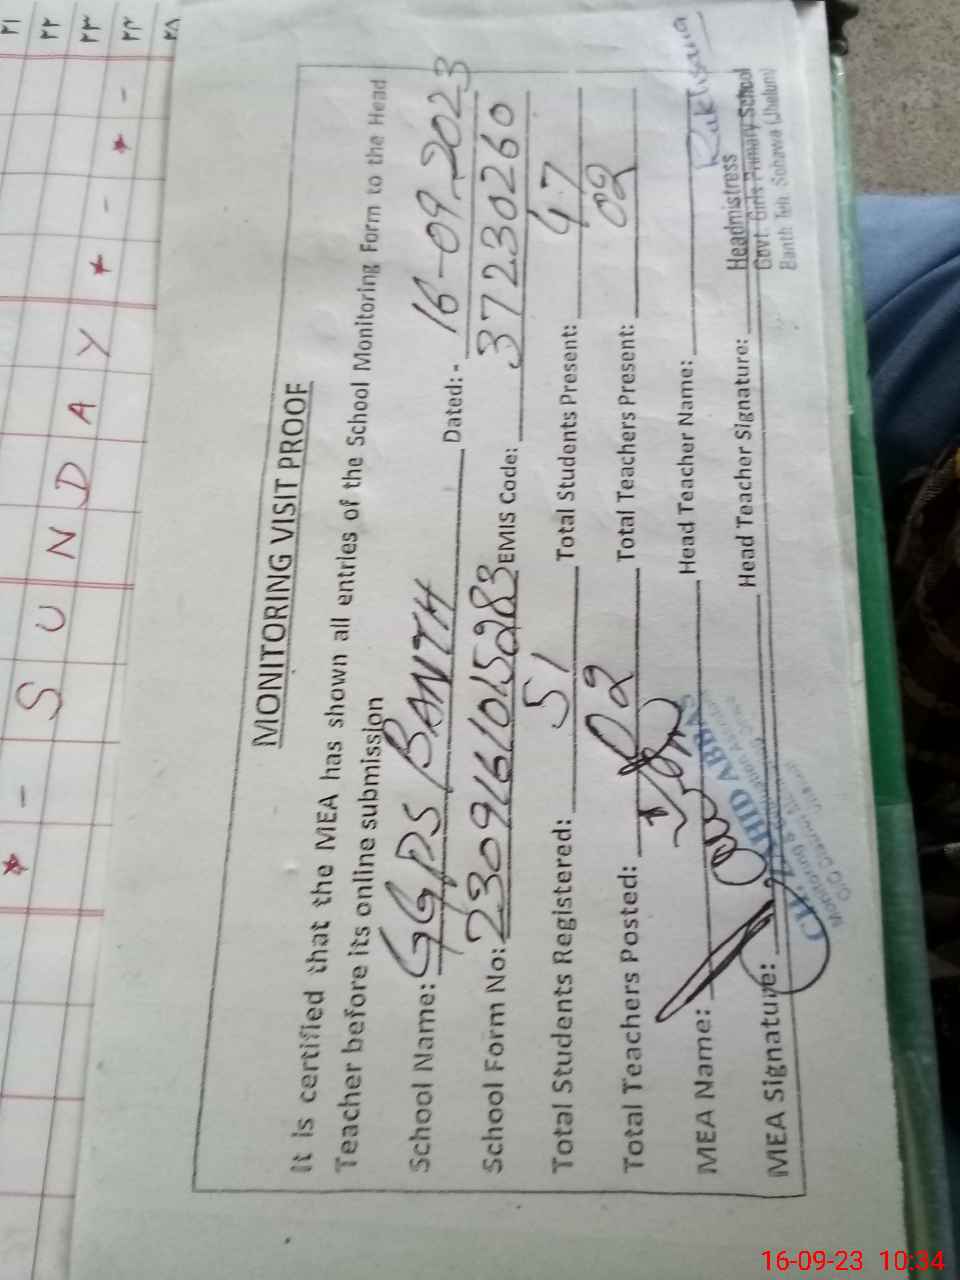 * - S U N D A Y * - * -
MONITORING VISIT PROOF
It is certified that the MEA has shown all entries of the School Monitoring Form to the Head
Teacher before its online submission
School Name: GGPS BANTH Dated:- 16-09-2023
School Form No: EMIS Code: 37230260
Total Students Registered: 51 Total Students Present: 47
Total Teachers Posted: 02 Total Teachers Present: 02
MEA Name: Head Teacher Name:
MEA Signature: Head Teacher Signature:
Headmistress
Govt. Girls Primary School
Banth Teh. Sohawa (Jhelum)
CH. ZAHID ABBAS
16-09-23 10:34